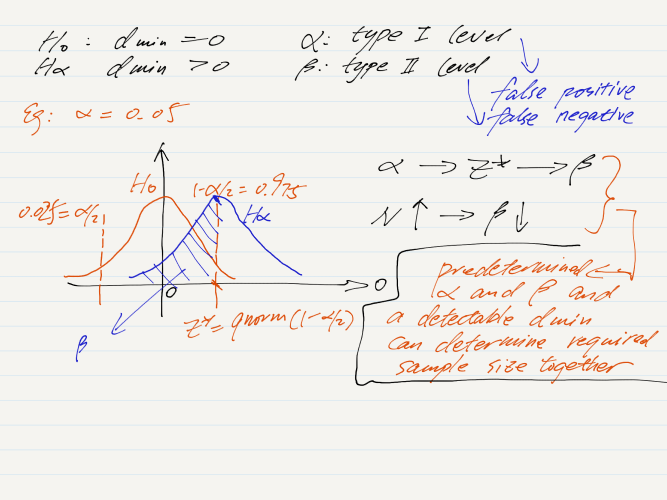 H₀ : dmin = 0
Hα dmin > 0
α: type I level
β: type II level
false positive
false negative
Eg: α = 0.05
H₀
1-α/2 = 0.975
0.025 = α/2
Hα
0
0
Z* = qnorm(1-α/2)
β
α → Z* → β
N ↑ → β ↓
predetermined
α and β and
a detectable dmin
can determine required
sample size together